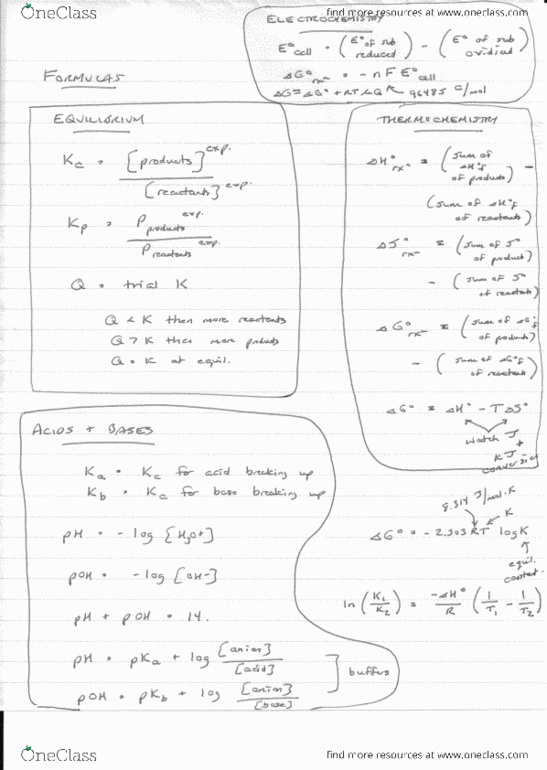 OneClass
find more resources at www.oneclass.com
ELECTROCHEMISTRY
E°cell = (E° of sub reduced) - (E° of sub oxidized)
ΔG°rxn = -nFE°cell
ΔG = ΔG° + RT ln Q 96485 C/mol
FORMULAS
EQUILIBRIUM
Kc = [products]^exp. / [reactants]^exp.
Kp = P products^exp. / P reactants^exp.
Q = trial K
Q < K then more reactants
Q > K then more products
Q = K at equil.
THERMOCHEMISTRY
ΔH°rxn = (sum of ΔH°f of products) -
(sum of ΔH°f of reactants)
ΔS°rxn = (sum of S° of product)
- (sum of S° of reactants)
ΔG°rxn = (sum of ΔG°f of products)
- (sum of ΔG°f of reactants)
ΔG° = ΔH° - TΔS°
watch J + KJ conversion
ACIDS + BASES
Ka = Kc for acid breaking up
Kb = Kc for base breaking up
pH = -log [H3O+]
pOH = -log [OH-]
pH + pOH = 14.
pH = pKa + log [anion]/[acid]
pOH = pKb + log [anion]/[base]
buffers
8.314 J/mol·K
K
ΔG° = -2.303 RT log K
equil. constant.
ln (K1/K2) = -ΔH°/R (1/T1 - 1/T2)
OneClass
find more resources at www.oneclass.com